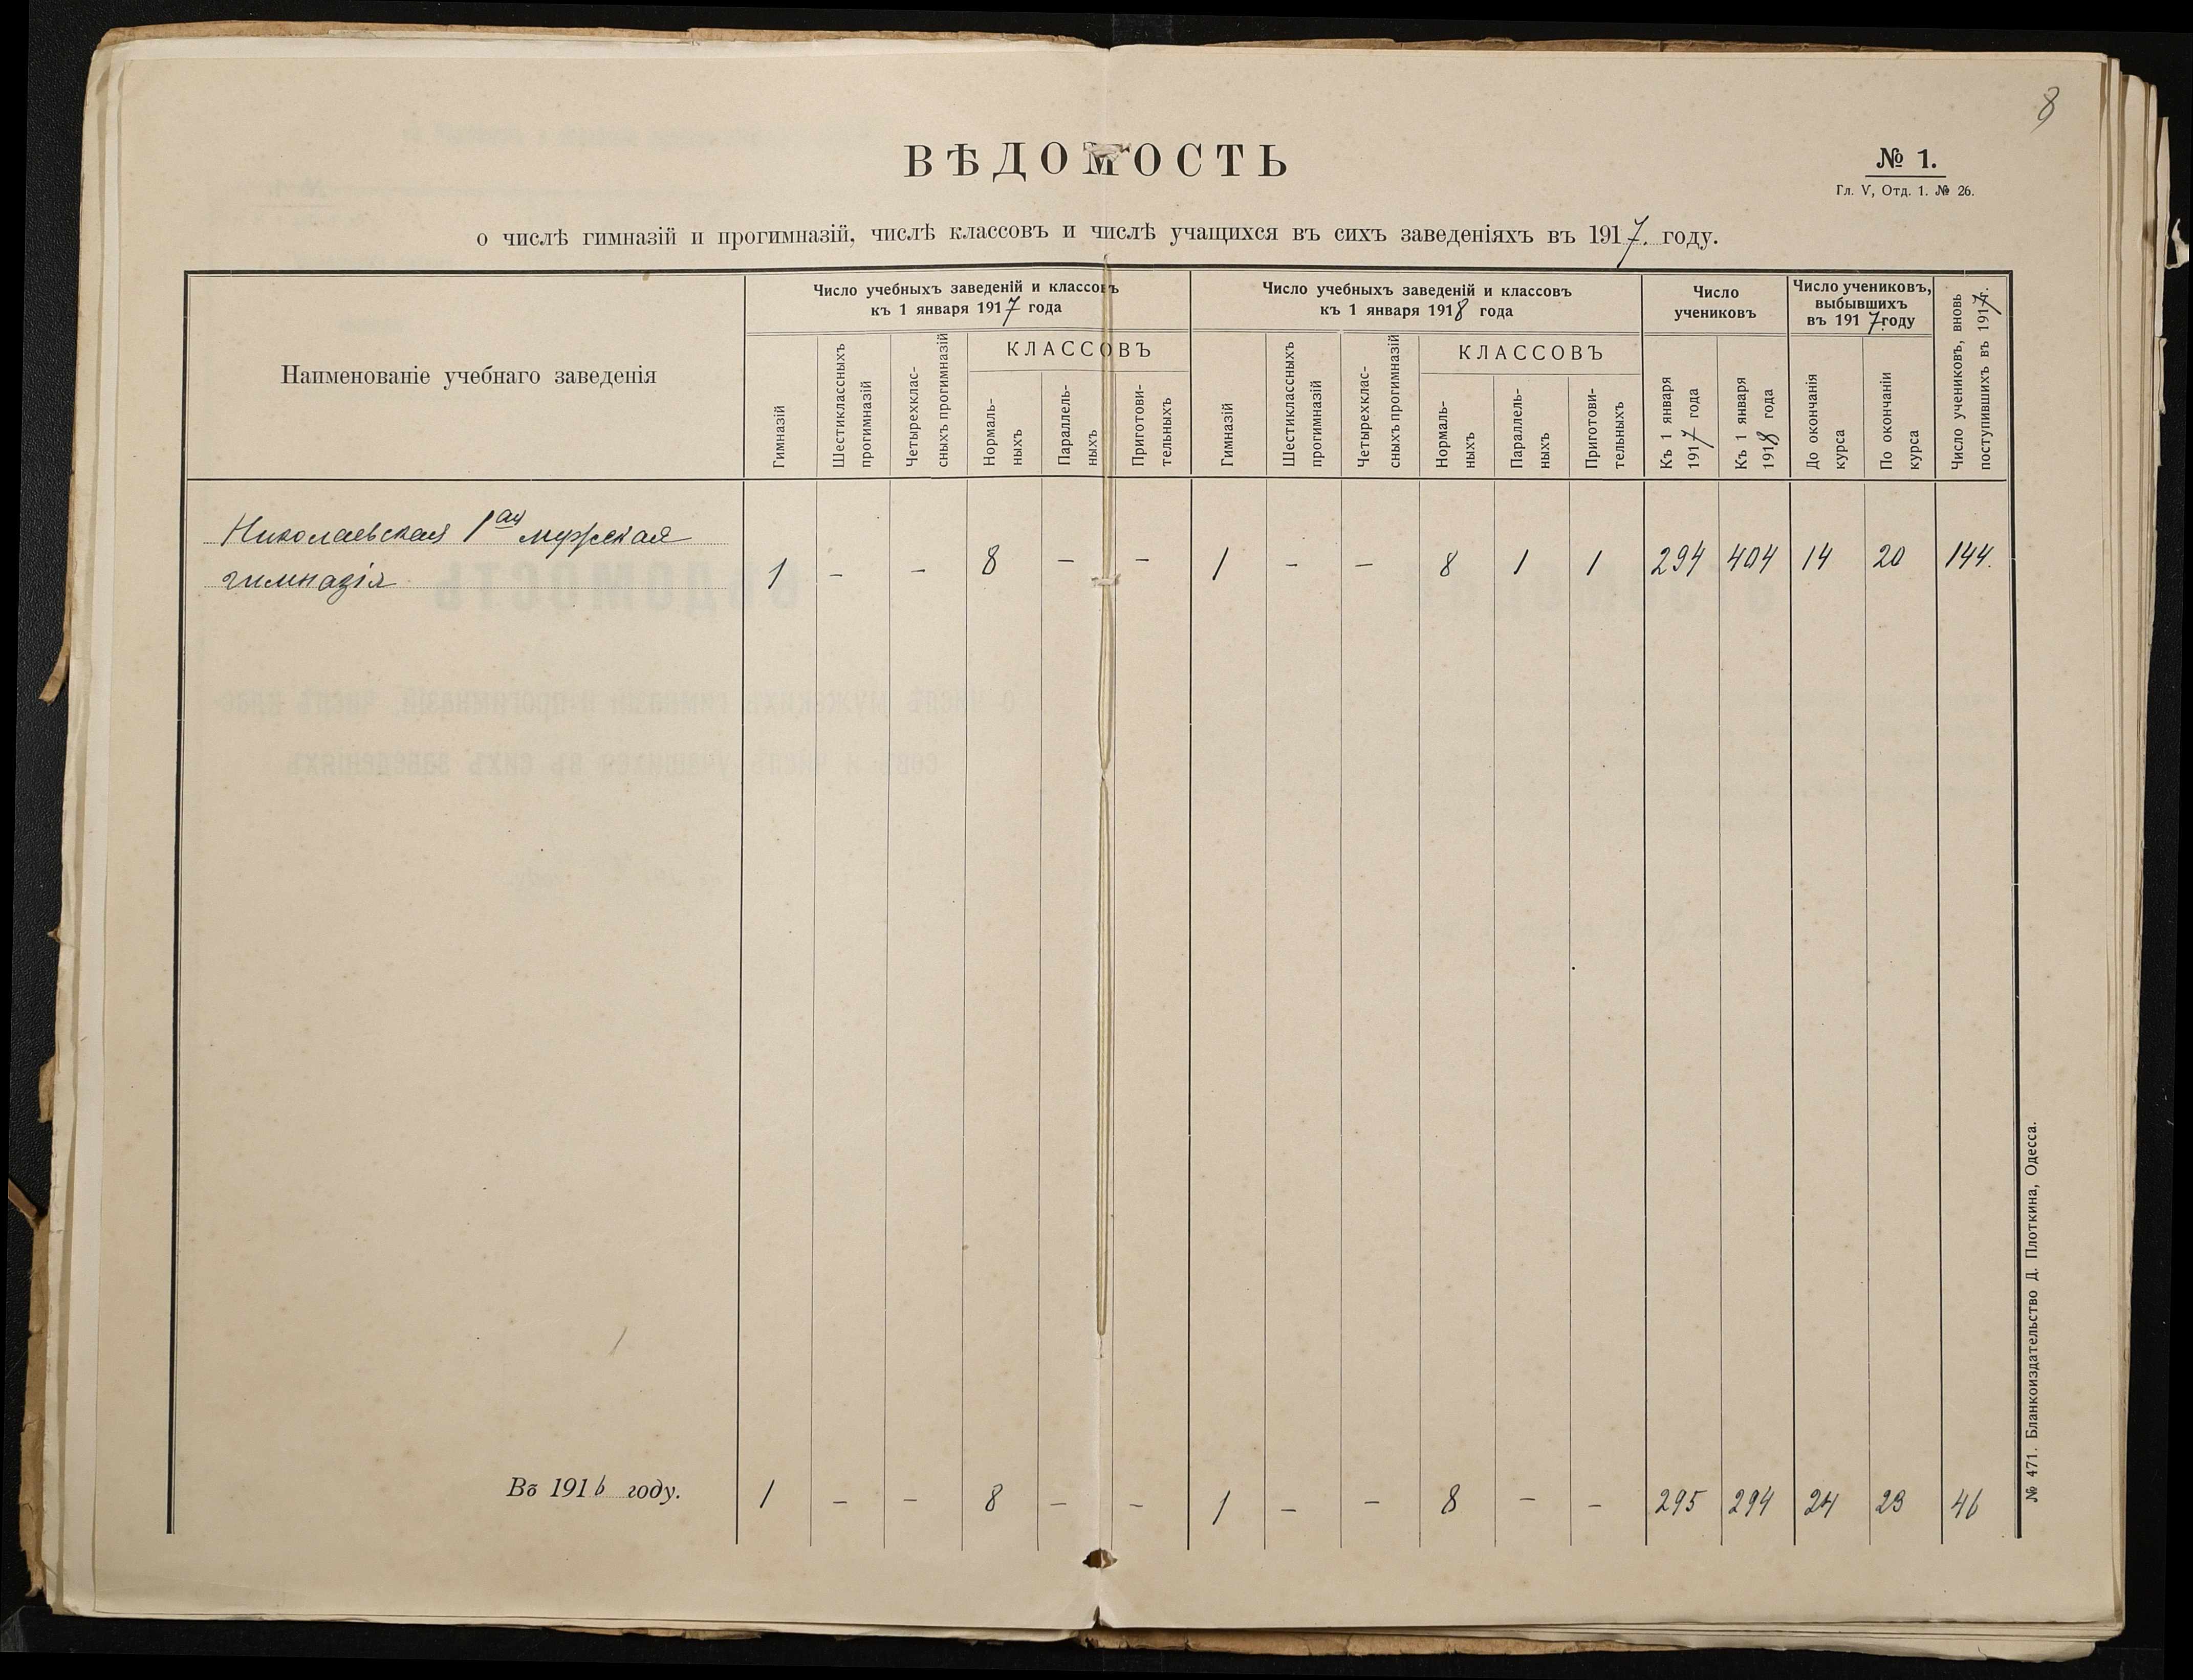 8
ВѢДОМОСТЬ
№ 1.
Гл. V, Отд. 1. № 26.
о числѣ гимназій и прогимназій, числѣ классовъ и числѣ учащихся въ сихъ заведеніяхъ въ 1917. году.
Наименованіе учебнаго заведенія
Число учебныхъ заведеній и классовъ
къ 1 января 1917 года
Гимназій
Шестиклассныхъ
прогимназій
Четырехклас-
сныхъ прогимназій
КЛАССОВЪ
Нормаль-
ныхъ
Параллель-
ныхъ
Приготови-
тельныхъ
Число учебныхъ заведеній и классовъ
къ 1 января 1918 года
Гимназій
Шестиклассныхъ
прогимназій
Четырехклас-
сныхъ прогимназій
КЛАССОВЪ
Нормаль-
ныхъ
Параллель-
ныхъ
Приготови-
тельныхъ
Число
учениковъ
Къ 1 января
1917 года
Къ 1 января
1918 года
Число учениковъ,
выбывшихъ
въ 1917 году
До окончанія
курса
По окончаніи
курса
Число учениковъ, вновь
поступившихъ въ 1917г.
Николаевская 1ая мужская
гимназія 1 – – 8 – – 1 – – 8 1 1 294 404 14 20 144.
Въ 1916 году. 1 – – 8 – – 1 – – 8 – – 295 294 24 23 46
№ 471. Бланкоиздательство Д. Плоткина, Одесса.